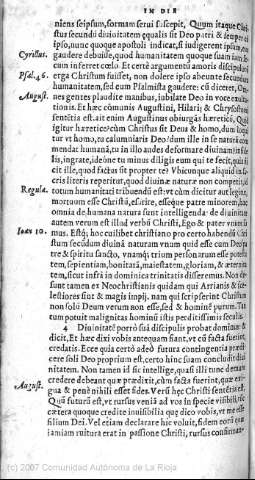 IN DIE
niens seipsum, formam serui suscepit, Quum itaque Chri
stus secundũ diuinitatem equalis sit Deo patri &
ipso, nunc quoque apostoli indicat, si indigerent ipsum
Cyrillus. gaudere debuisse, quod humanitatem quoque suam
cum inferret cœlo. Et certè argumentũ amoris discipulorũ
Psal. 46. erga Christum fuisset, non dolere ipso abeunte secundum
humanitatem, sed cum Psalmista gaudere: cũ diceret, Om
August. nes gentes plaudite manibus, iubilate Deo in voce exulta
tionis. Et hæc cõmunis Augustini, Hilarij & Chrysostomi
sententia est, ait enim Augustinus obiurgãs hæreticũ, Quid
igitur hæretice? cùm Christus sit Deus & homo, dum loqui
tur vt homo, tu calumniaris Deo? dum ille in se naturã com
mendat humanã, tu in illo audes deformare diuinam?
lis, ingrate, ideóne tu minus diligis eum qui te fecit, quia di
cit ille, quod factus sit propter te? Vbicunque aliquid in sa
cris literis reperitur, quod diuinæ naturæ non competit, id
Regula. totum humanitati tribuendũ est: vt cùm dicitur aut legitur,
mortuum esse Christũ, esurire, esseque patre minorem, hæc
omnia de humana natura sunt intelligenda: de diuinitate
autem verum est illud verbũ Christi, Ego & pater vnum su
Ioan 10. mus. Estq́; hoc cuilibet christiano pro certo habendũ Chri
stum secũdum diuinã naturam vnum quid esse cum Deo pa
tre & spiritu sancto, vnamq́; trium personarum esse potesta
tem, sapientiam, bonitatẽ, maiestatem, gloriam, & æternita
tem, sicut infrà in dominica trinitatis disseremus. Non de-
sunt tamen ex Neochristianis quidam qui Arrianis & sce-
lestiores sunt & magis impij. nam qui scripserint Christum
non solũ Deum verum non esse, sed & hominẽ purum. Tã
tum potuit malignitas hominũ istis perditissimis seculis.
4 Diuinitatẽ porrò suã discipulis probat dominus &
dicit, Et hæc dixi vobis antequam fiant, vt cũ facta fuerint,
credatis. Ecce quia certò adeò futura contingentia prædi
cere soli Deo proprium est, certò hinc suam concludit diui
nitatem. Non tamen id sic intellige, quasi illi tunc demum
credere debeant quæ prædixit, cùm facta fuerint, quæ
gua & penè nihili esset fides. Verũ hęc Christi sentẽtia est,
August. Quũ futurũ est, vt rursus veniã ad vos in specie visibili,
cætera quoque credite inuisibilia quæ dico vobis, vt me esse
filium Dei. Vel etiam declarare hic voluit, fidem eorũ quæ
iamiam ruitura erat in passione Christi, rursus confirman
(c) 2007 Comunidad Autónoma de La Rioja